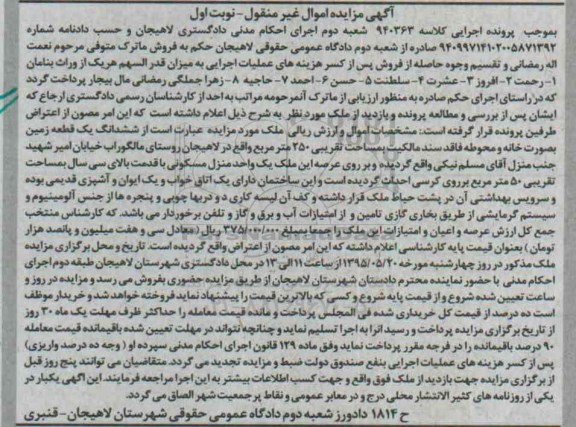 آگهی مزایده اموال غیر منقول - نوبت اول
بموجب پرونده اجرایی کلاسه ۹۴۰۳۶۳ شعبه دوم اجرای احکام مدنی دادگستری لاهیجان و حسب دادنامه شماره
۹۴۰۹۹۷۱۴۱۰۲۰۰۵۸۷۱۳۹۲ صادره از شعبه دوم دادگاه عمومی حقوقی لاهیجان حکم به فروش ماترک متوفی مرحوم نعمت
اله رمضانی و تقسیم وجوه حاصله از فروش پس از کسر هزینه های عملیات اجرایی به میزان قدر السهم هریک از وراث بنامان
۱- رحمت ۲- افروز ۳- عشرت ۴- سلطنت ۵- حسن ۶- احمد ۷- حاجیه ۸- زهرا جملگی رمضانی مال بیجار پرداخت گردد
که در راستای اجرای حکم صادره به منظور ارزیابی از ماترک آنمرحومه مراتب به احد از کارشناسان رسمی دادگستری ارجاع که
ایشان پس از بررسی و مطالعه پرونده و بازدید از ملک مورد نظر به شرح ذیل اعلام داشته است که این امر مصون از اعتراض
طرفین پرونده قرار گرفته است: مشخصات اموال و ارزش ریالی ملک مورد مزایده عبارت است از ششدانگ یک قطعه زمین
بصورت خانه و محوطه فاقد سند مالکیت بمساحت تقریبی ۲۵۰ متر مربع واقع در لاهیجان روستای مالگوراب خیابان امیر شهید
جنب منزل آقای مسلم نیکی واقع گردیده و بر روی عرصه این ملک یک واحد منزل مسکونی با قدمت بالای سی سال بمساحت
تقریبی ۵۰ متر مربع بر روی کرسی احداث گردیده است و این ساختمان دارای یک اتاق خواب و یک ایوان و آشپزی قدیمی بوده
و سرویس بهداشتی آن در پشت حیاط ملک قرار داشته و کف آن لیسه کاری و دربها چوبی و پنجره ها از جنس آلومینیوم و
سیستم گرمایشی از طریق بخاری گازی تامین و از امتیازات آب و برق و گاز و تلفن برخوردار می باشد. که کارشناس منتخب
جمع کل ارزش عرصه و اعیان و امتیازات این ملک را جمعا بمبلغ ۳۷۵/۰۰۰/۰۰۰ ریال (معادل سی و هفت میلیون و پانصد هزار
تومان) بعنوان قیمت پایه کارشناسی اعلام داشته که این امر مصون از اعتراض واقع گردیده است. تاریخ و محل برگزاری مزایده
ملک مذکور در روز چهارشنبه مورخه ۱۳۹۵/۰۵/۲۰ از ساعت ۱۱ الی ۱۳ در محل دادگستری شهرستان لاهیجان طبقه دوم اجرای
احکام مدنی با حضور نماینده محترم دادستان شهرستان لاهیجان از طریق مزایده حضوری بفروش می رسد و مزایده در روز و
ساعت تعیین شده شروع و از قیمت پایه شروع و کسی که بالاترین قیمت را پیشنهاد نماید فروخته خواهد شد و خریدار موظف
است ده درصد از قیمت کل خریداری شده فی المجلس پرداخت و مانده قیمت معامله را حداکثر ظرف مهلت یک ماه ۳۰ روز
از تاریخ برگزاری مزایده پرداخت و رسید آنرا به اجرا تسلیم نماید و چنانچه نتواند در مهلت تعیین شده باقیمانده قیمت معامله
۹۰ درصد باقیمانده را در فرجه مقرر پرداخت نماید وفق ماده ۱۲۹ قانون اجرای احکام مدنی سپرده او (وجه ده درصد واریزی)
پس از کسر هزینه های عملیات اجرایی بنفع صندوق دولت ضبط و مزایده تجدید می گردد. متقاضیان می توانند پنج روز قبل
از برگزاری مزایده جهت بازدید از ملک فوق واقع و جهت کسب اطلاعات بیشتر به این اجرا مراجعه فرمایند. این آگهی یکبار در
یکی از روزنامه های کثیر الانتشار محلی درج و در معابر عمومی و نقاط پر جمعیت شهر الصاق می گردد.
ح ۱۸۱۴ دادورز شعبه دوم دادگاه عمومی حقوقی شهرستان لاهیجان - قنبری